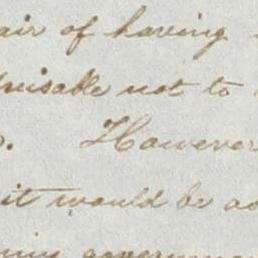 air of having
visable not to
. However
it would be ad
governmen